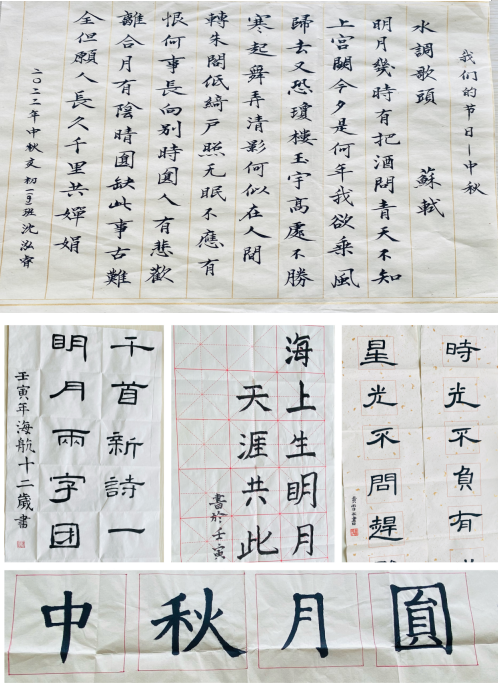 我们的节日—中秋
水調歌頭 蘇軾
明月幾時有把酒問青天不知
上宮闕今夕是何年我欲乘風
歸去又恐瓊樓玉宇高處不勝
寒起舞弄清影何似在人間
轉朱閣低綺戶照无眠不應有
恨何事長向別時圓人有悲歡
離合月有陰晴圓缺此事古難
全但願人長久千里共嬋娟
二〇二二年中秋 初一班沈泓睿
千首新詩一
明月兩字团
壬寅年海航十二歲書
海上生明月
天涯共此
書於壬寅
時光不負有
星光不問趕
中秋月圓